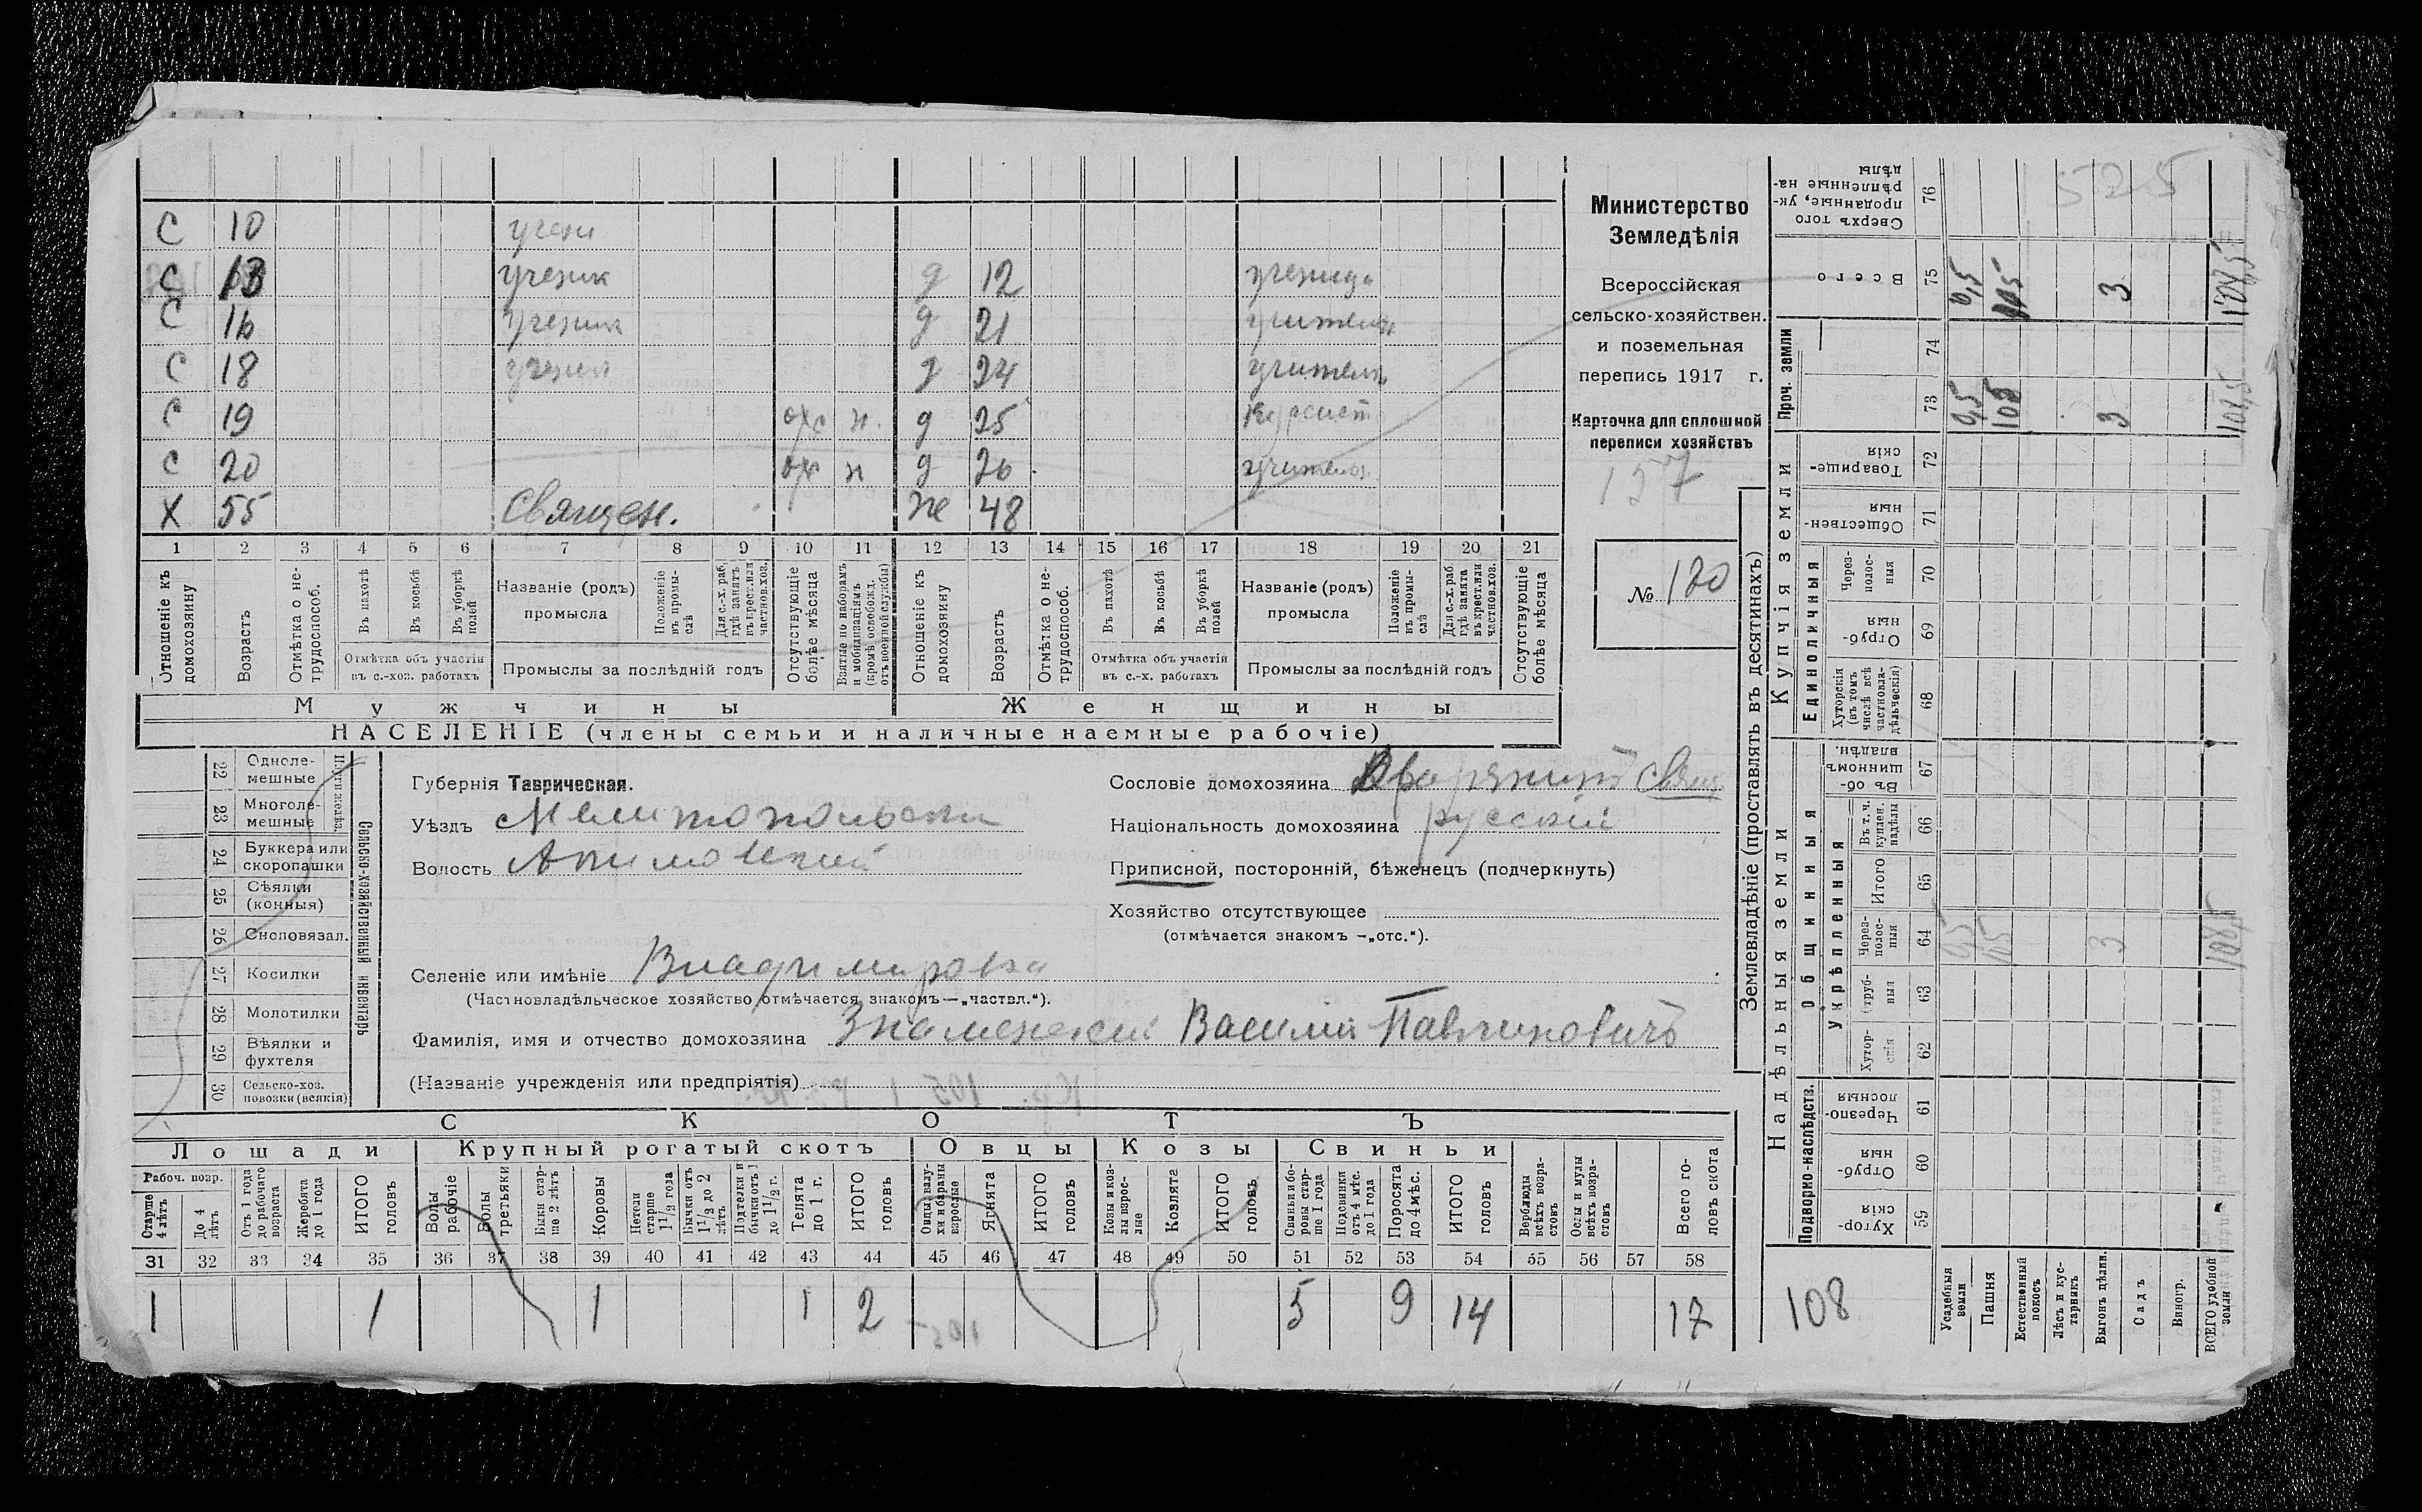 С 10 учени
С 13 ученик д 12 ученица
С 16 ученик д 21 учитель
С 18 ученик д 24 учитель
С 19 н. д 25 курсист
С 20 н д 26 учитель
Х 55 Священ. же 48
1 2 3 4 5 6 7 8 9 10 11 12 13 14 15 16 17 18 19 20 21
Отношеніе къ домохозяину
Возрастъ
Отмѣтка о нетрудоспособ.
Въ пахотѣ
Въ косьбѣ
Въ уборкѣ полей
Отмѣтка объ участіи въ с.-хоз. работахъ
Названіе (родъ) промысла
Положеніе въ промыслѣ
Для с.-х. раб. гдѣ занятъ въ крест. или частнов. хоз.
Промыслы за послѣдній годъ
Отсутствующіе болѣе мѣсяца
Взятые по наборамъ и мобилизаціямъ (кромѣ освобожд. отъ военной службы)
Отношеніе къ домохозяину
Возрастъ
Отмѣтка о нетрудоспособ.
Въ пахотѣ
Въ косьбѣ
Въ уборкѣ полей
Отмѣтка объ участіи въ с.-х. работахъ
Названіе (родъ) промысла
Положеніе въ промыслѣ
Для с.-х. раб. гдѣ занята въ крест. или частнов. хоз.
Промыслы за послѣдній годъ
Отсутствующіе болѣе мѣсяца
Мужчины Женщины
НАСЕЛЕНІЕ (члены семьи и наличные наемные рабочіе)
Министерство
Земледѣлія
Всероссійская
сельско-хозяйствен.
и поземельная
перепись 1917 г.
Карточка для сплошной
переписи хозяйствъ
157
№ 120
Сельско-хозяйственный инвентарь
22 Однолемешные
23 Многолемешные
24 Буккера или скоропашки
25 Сѣялки (конныя)
26 Сноповязал.
27 Косилки
28 Молотилки
29 Вѣялки и фухтеля
30 Сельско-хоз. повозки (всякія)
Губернія Таврическая.
Уѣздъ Мелитопольски
Волость Акимовский
Селеніе или имѣніе Владимировка
(Частновладѣльческое хозяйство отмѣчается знакомъ—„частвл.“).
Фамилія, имя и отчество домохозяина Знаменский Василий Павлинович
(Названіе учрежденія или предпріятія)
Сословіе домохозяина Дворянинъ Свящ.
Національность домохозяина русскій
Приписной, посторонній, бѣженецъ (подчеркнуть)
Хозяйство отсутствующее
(отмѣчается знакомъ —„отс.“).
СКОТЪ
Лошади Крупный рогатый скотъ Овцы Козы Свиньи
Рабоч. возр.
Старше 4 лѣтъ
До 4 лѣтъ
Отъ 1 года до рабочаго возраста
Жеребята до 1 года
ИТОГО головъ
Волы рабочіе
Волы третьяки
Быки старше 2 лѣтъ
Коровы
Нетели старше 1 1/2 года
Бычки отъ 1 1/2 до 2 лѣтъ
Подтелки и бычки отъ 1 до 1 1/2 г.
Телята до 1 г.
ИТОГО головъ
Овцы, валухи и бараны взрослые
Ягнята
ИТОГО головъ
Козы и козлы взрослые
Козлята
ИТОГО головъ
Свиньи и боровы старше 1 года
Подсвинки отъ 4 мѣс. до 1 года
Поросята до 4 мѣс.
ИТОГО головъ
Верблюды всѣхъ возрастовъ
Ослы и мулы всѣхъ возрастовъ
Всего головъ скота
31 32 33 34 35 36 37 38 39 40 41 42 43 44 45 46 47 48 49 50 51 52 53 54 55 56 57 58
1 1 1 1 2 5 9 14 17
Землевладѣніе (проставлять въ десятинахъ)
Надѣльныя земли Купчія земли
Подворно-наслѣдств. Общинныя Укрѣпленныя Единоличныя Проч. земли
Сверхъ того проданные, укрѣпленные надѣлы 76 525
Всего 75 0,5 105 3 108,5
74
73 0,5 105 3 108,5
Товарищескія 72
Общественныя 71
Черезполосныя 70
Отрубныя 69
Хуторскія (въ томъ числѣ всѣ частновладѣльческія) 68
Въ общинномъ владѣн. 67
Въ т. ч. куплен. надѣлы 66
Итого 65
Черезполосныя 64 0,5 105 3 108,5
Отрубныя 63
Хуторскія 62
Черезполосныя 61
Отрубныя 60
Хуторскія 59
108
Усадебныя земли
Пашня
Естественный покосъ
Лѣсъ и кустарникъ
Выгонъ дѣлин.
Садъ
Виногр.
ВСЕГО удобной земли